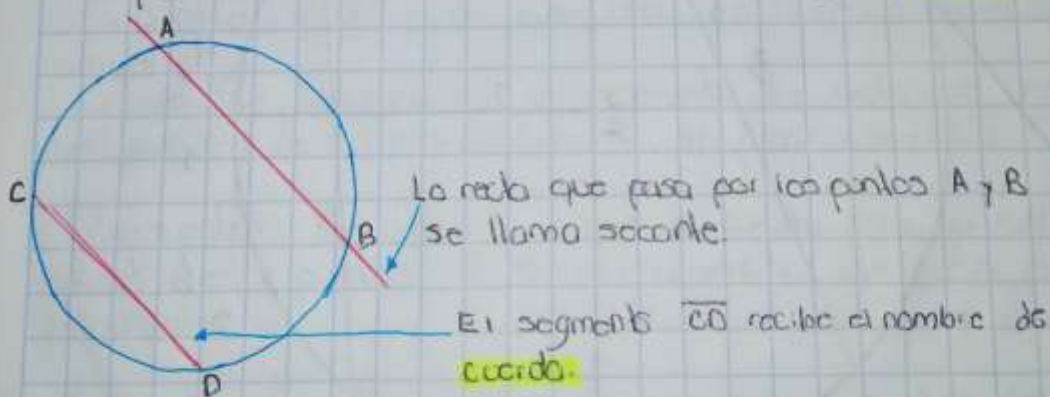 A
C
La recta que pasa por los puntos A y B
B
se llama secante.
El segmento CD recibe el nombre de
cuerda.
D